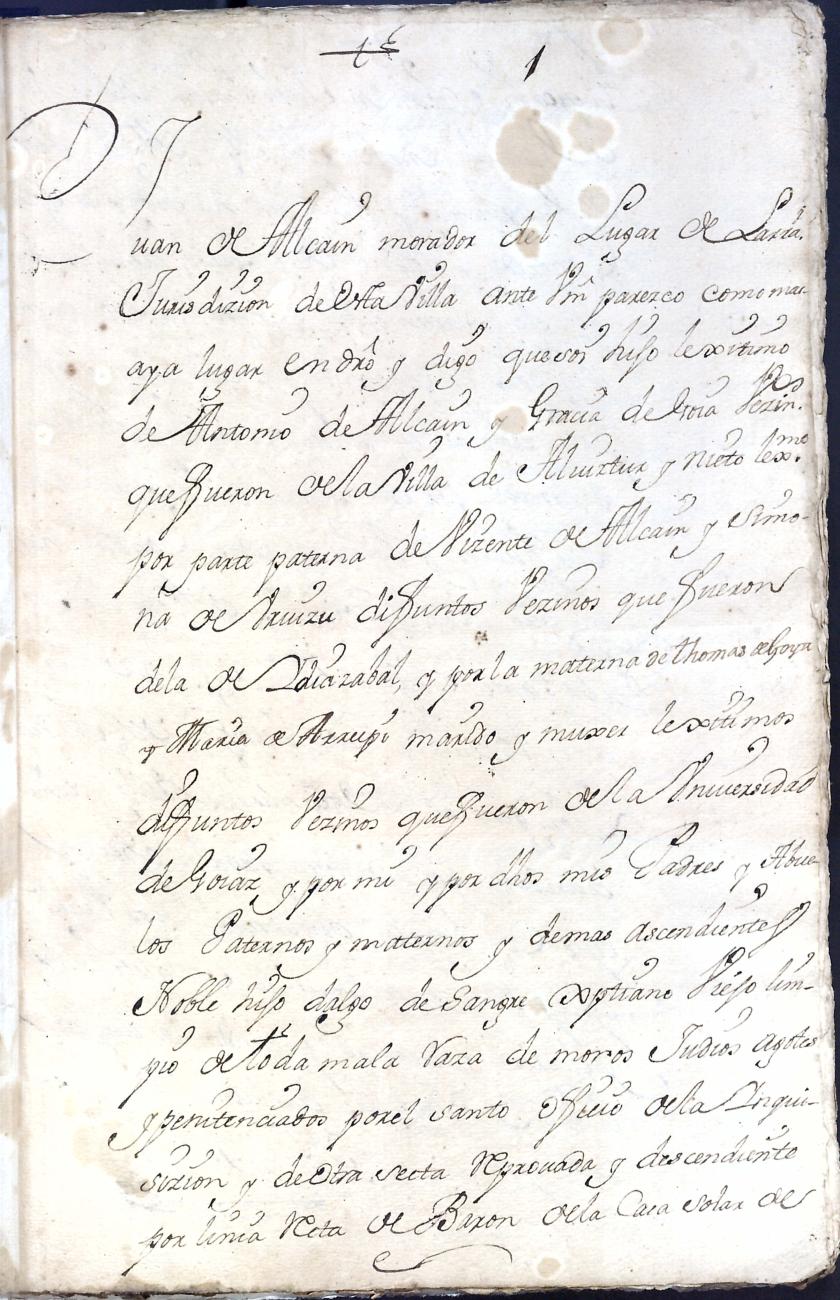 1
Juan de Alcain morador del Lugar de Larra.
Jurisdizion de esta Villa ante Vm parezco como mas
aya lugar en dro y digo que soi hijo lexitimo
de Antonio de Alcain y Gracia de Goia Vezin.os
que fueron de la Villa de Alvistur y nieto lex.mo
por parte paterna de Vizente de Alcain y Simo-
na de Vrvizu difuntos Vezinos que fueron
dela de Idiazabal, y por la materna de thomas de Goya
y Maria de Arrupi marido y muxer lexitimos
difuntos Vezinos que fueron de la Vniversidad
de Goiaz, y por mi y por dhos mis Padres y Abue-
los Paternos y maternos y demas ascendientes
Noble hijo dalgo de sangre xptiano Viejo lim-
pio de toda mala raza de moros Judios agotes
y penitenciados por el santo oficio de la Inqui-
sizion y de otra secta reprovada y descendiente
por linia recta de Baron de la Casa solar de